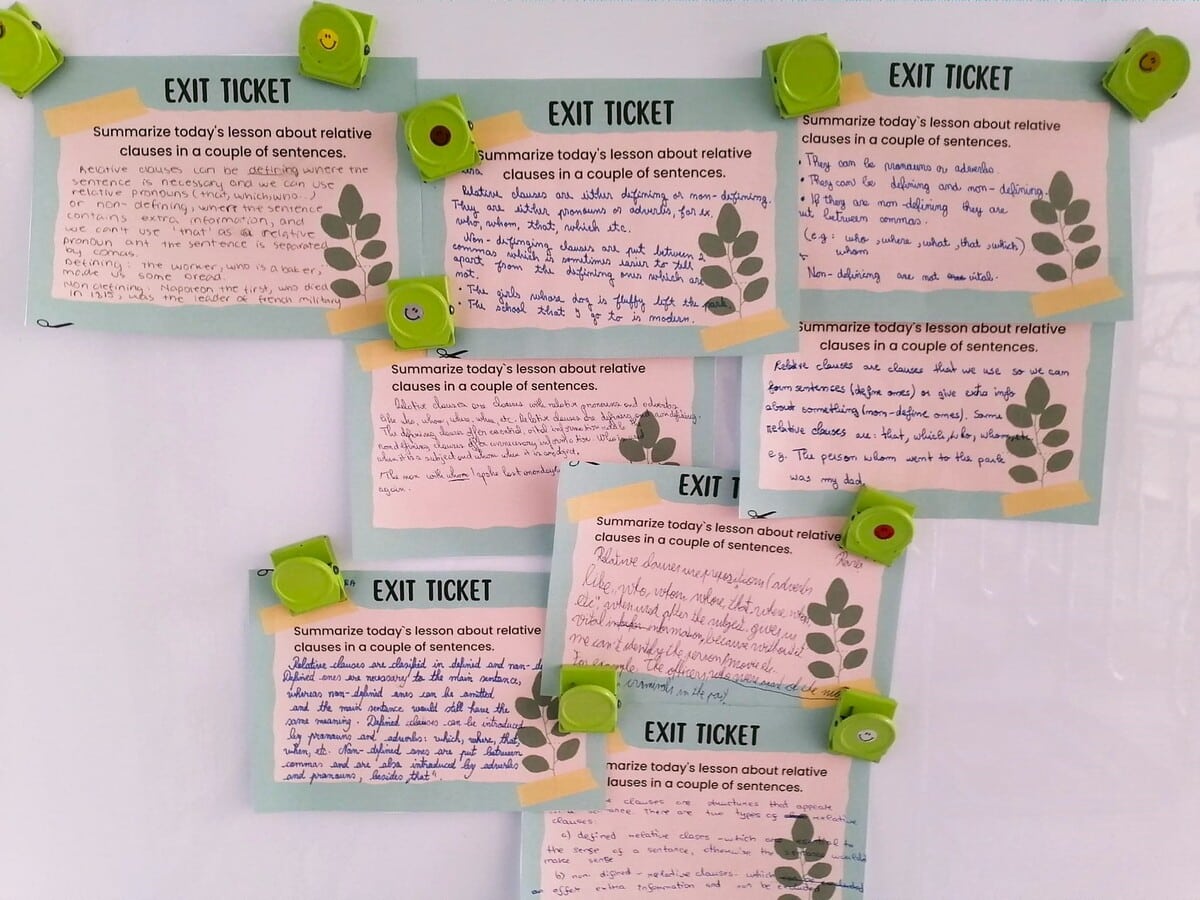 EXIT TICKET
Summarize today's lesson about relative
clauses in a couple of sentences.
Relative clauses can be defining where the
sentence is necessary and we can use
relative pronouns (that, which, who...)
or non-defining, where the sentence
contains extra information, and
we can't use 'that' as a relative
pronoun ant the sentence is separated
by comas.
Defining: The worker, who is a baker,
made us some bread.
Non defining: Napoleon the first, who died
in 1815, was the leader of french military
EXIT TICKET
Summarize today's lesson about relative
clauses in a couple of sentences.
Relative clauses are either defining or non-defining.
They are either pronouns or adverbs, for ex.
who, whom, that, which etc.
Non-difinging clauses are put between 2
commas which is sometimes easier to tell
apart from the difining ones which are
not.
• The girls whose dog is fluffy left the park.
• The school that I go to is modern.
EXIT TICKET
Summarize today's lesson about relative
clauses in a couple of sentences.
• They can be pronouns or adverbs.
• They can be defining and non-defining.
• If they are non-defining they are
ut between commas.
(e.g: who, where, what, that, which)
whom
Non-defining are not vital.
Summarize today's lesson about relative
clauses in a couple of sentences.
Relative clauses are clauses with relative pronouns and adverbs
like who, whom, where, who, etc. Relative clauses are defining and non defining.
The defining clauses offer essential, vital information while the
nondefining clauses offer unnecessary information. Who is used
when it is a subject and whom when it is an object.
The man with whom I spoke last monday
again.
Summarize today's lesson about relative
clauses in a couple of sentences.
Relative clauses are clauses that we use so we can
form sentences (define ones) or give extra info
about something (non-define ones). Some
relative clauses are: that, which, who, whom, etc.
e.g. The person whom went to the park
was my dad.
EXIT T
Summarize today`s lesson about relative
clauses in a couple of sentences.
Relative clauses are prepositions/adverbs
like "who, whom, whose, that, where, when,
etc", when used after the subject, gives us
vital information, because without it
we can't identify the person/movie etc.
For example: The officers
criminals in the past.
EXIT TICKET
Summarize today`s lesson about relative
clauses in a couple of sentences.
Relative clauses are clasified in defined and non-de
Defined ones are necessary to the main sentence,
whereas non-defined ones can be omitted
and the main sentence would still have the
same meaning. Defined clauses can be introduced
by pronouns and adverbs: which, where, that,
when, etc. Non-defined ones are put between
commas and are also introduced by adverbs
and pronouns, besides "that".
EXIT TICKET
marize today's lesson about relative
lauses in a couple of sentences.
clauses are structures that appear
sentence. There are two types of relative
clauses:
a) defined relative closes - which are to
the sense of a sentence, otherwise the sentence wouldn't
make sense
b) non difined - relative clauses - which
offer extra information and